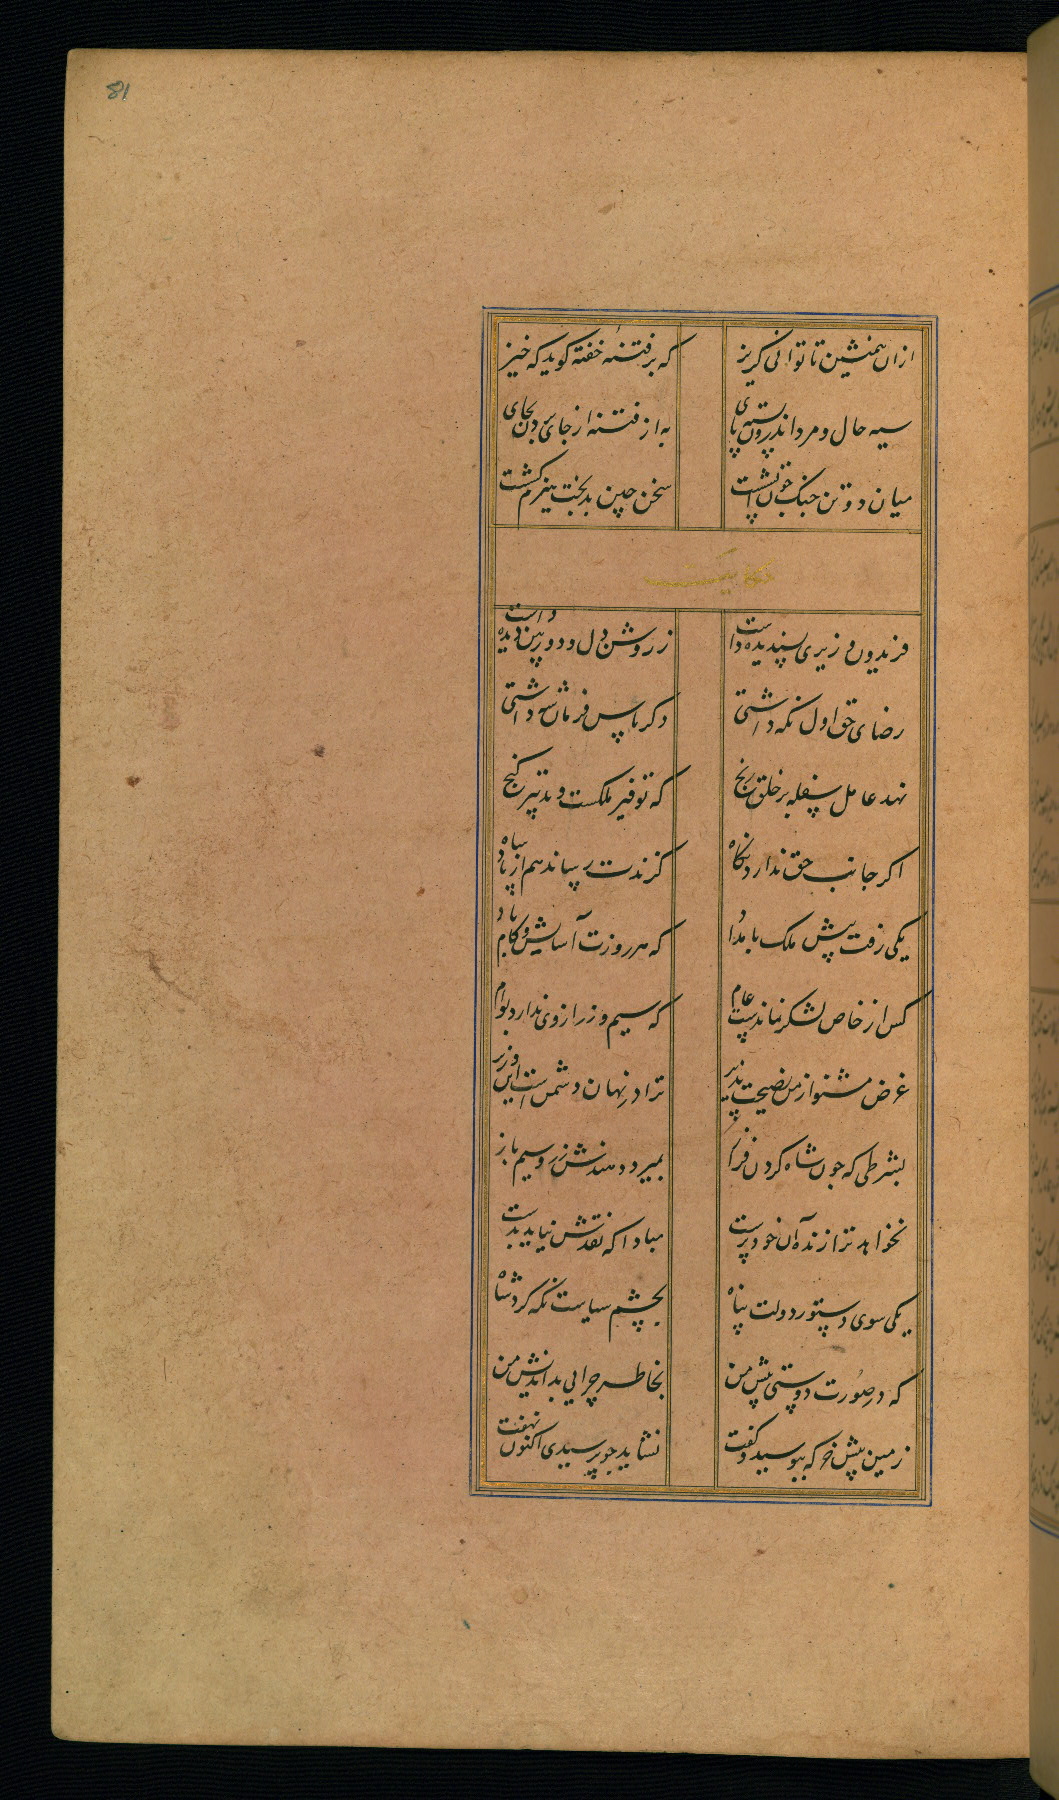 81
ازان همنشین تا توانی کریز که بر فتنهٔ خفته کوید که خیز
سیه حال و مرد اندرو بسته پای به از فتنه از جای بردن بجای
میان دو تن جنک چون آتشست سخن چین بدبخت هیزم کشست
حکایت
فریدون وزیری پسندیده داشت که روشن دل و دوربین دیده داشت
رضای حق اول نکه داشتی دکر پاس فرمان شه داشتی
نهد عامل سفله بر خلق رنج که توفیر ملکست و تدبیر کنج
اکر جانب حق ندارد نکاه کزندت رساند هم از پادشاه
یکی رفت پیش ملک بامداد که هر روزت آسایش و کام باد
کس از خاص لشکر نماندست و عام که سیم و زر از وی ندارد بوام
غرض مشنو از من نصیحت پذیر ترا در نهان دشمن است این وزیر
بشرطی که چون شاه کردن فراز بمیرد دهندش زر و سیم باز
نخواهد ترا زنده آن خودپرست مبادا که نقدش نیاید بدست
یکی سوی دستور دولت پناه بچشم سیاست نکه کرد شاه
که در صورت دوستی پیش من بخاطر چرایی بد اندیش من
زمین پیش خرکه ببوسید و کفت نشاید چو پرسیدی اکنون نهفت